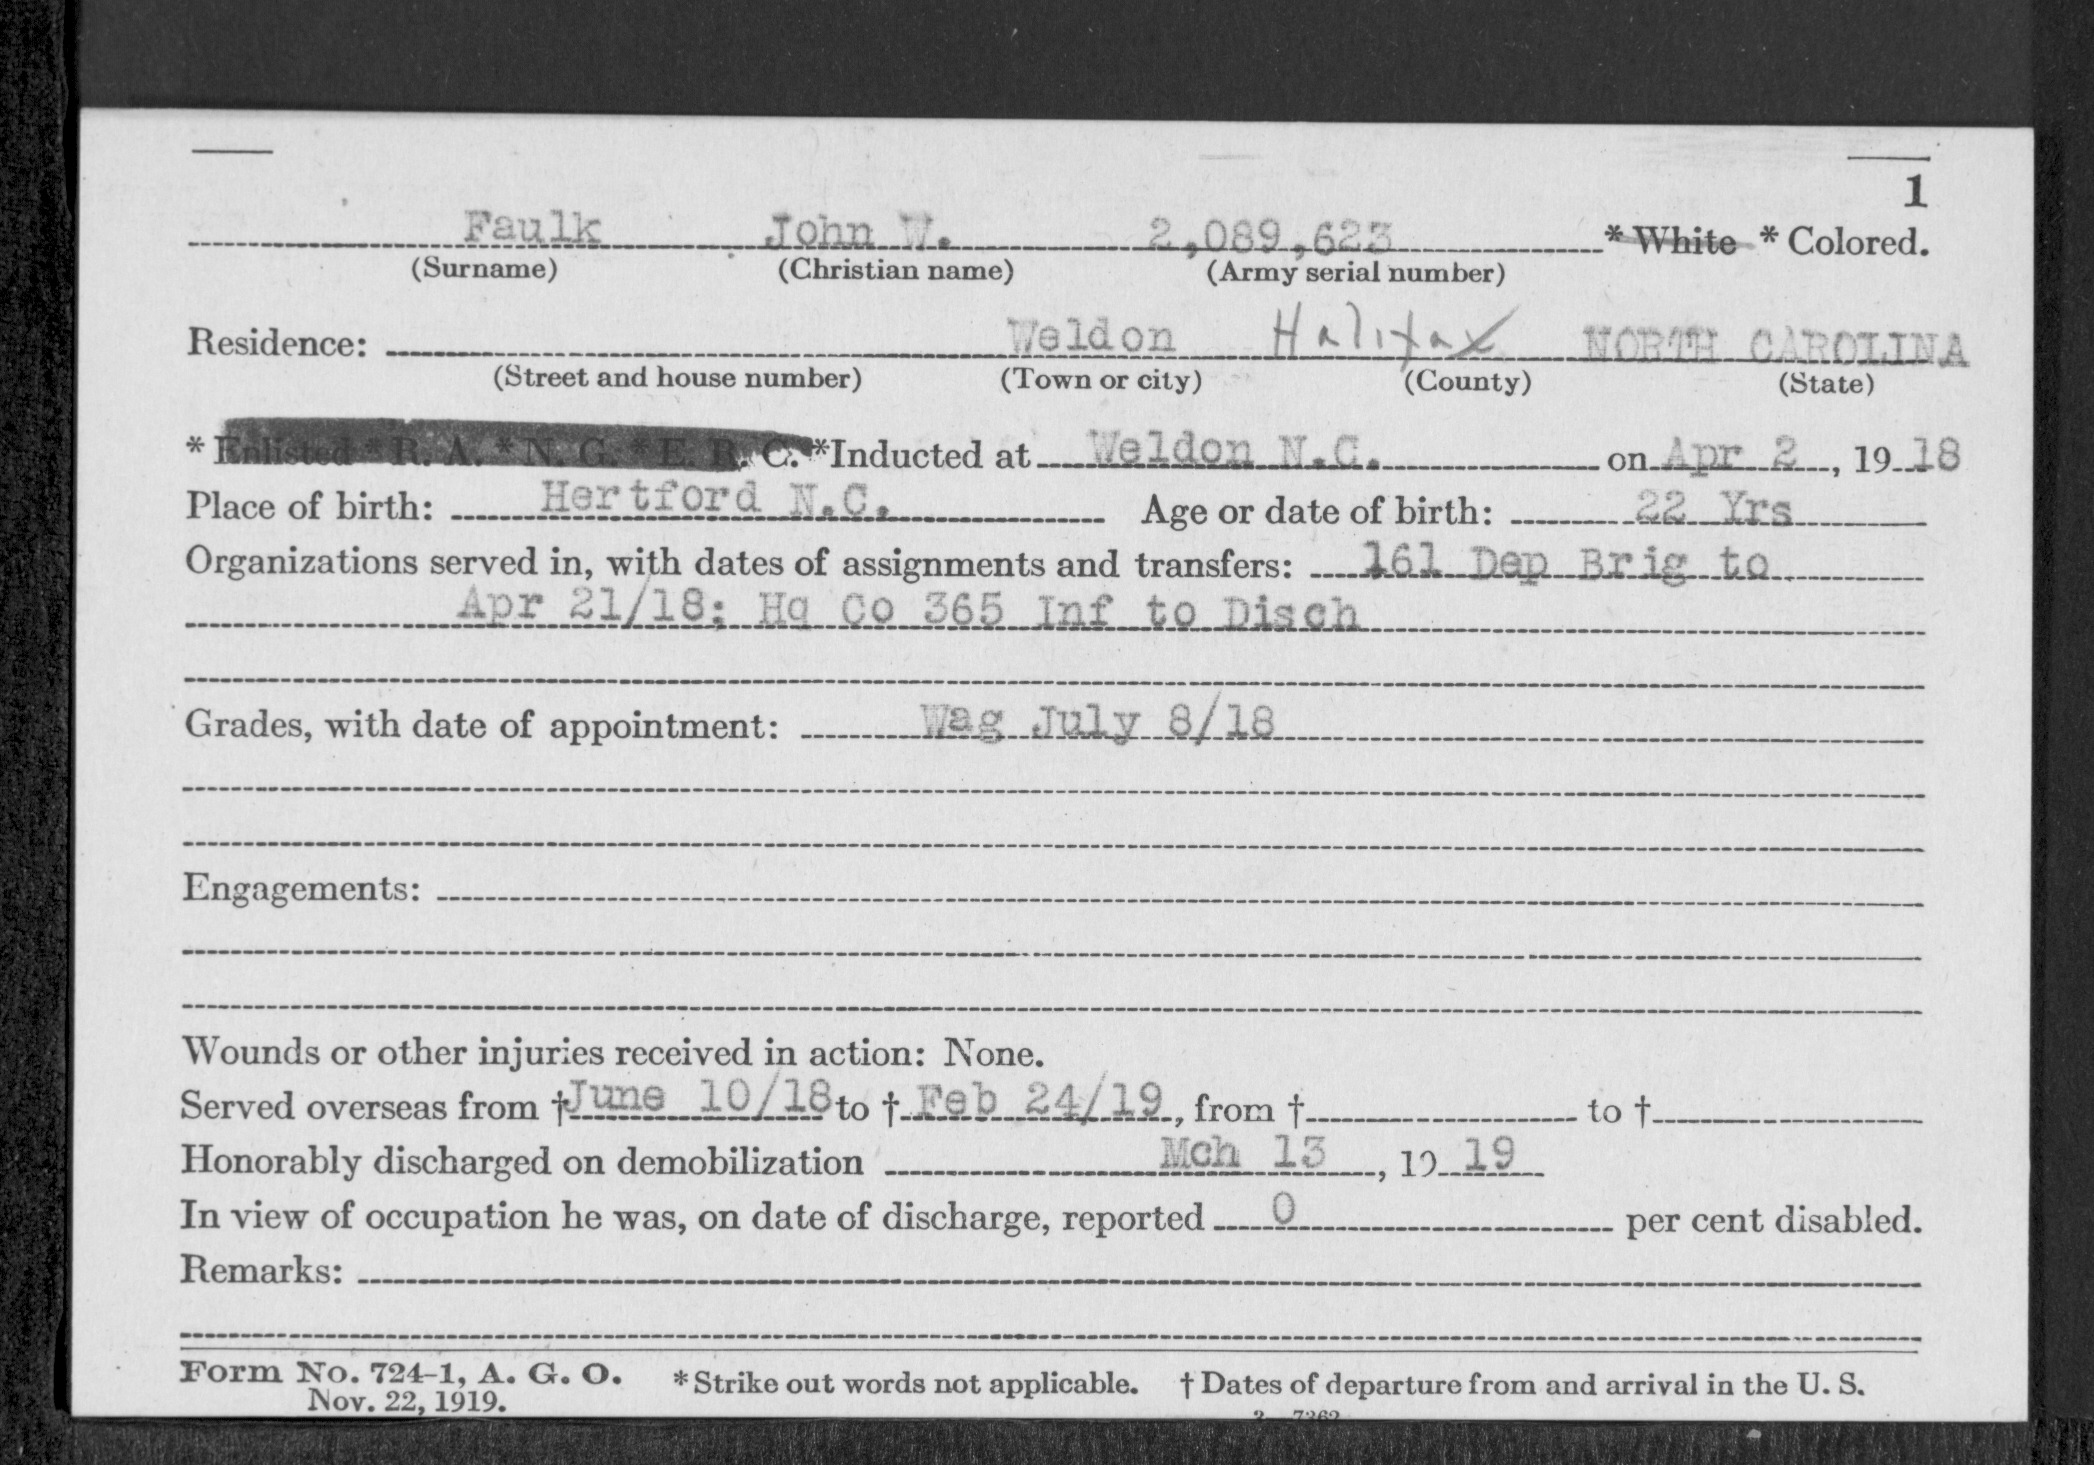 1
Faulk John W. 2,089,623 * White * Colored.
(Surname) (Christian name) (Army serial number)
Residence: Weldon Halifax NORTH CAROLINA
(Street and house number) (Town or city) (County) (State)
* Enlisted * R. A. * N. G. * E. R. C. *Inducted at Weldon N.C. on Apr 2, 19 18
Place of birth: Hertford N.C. Age or date of birth: 22 Yrs
Organizations served in, with dates of assignments and transfers: 161 Dep Brig to
Apr 21/18; Hq Co 365 Inf to Disch
Grades, with date of appointment: Wag July 8/18
Engagements:
Wounds or other injuries received in action: None.
Served overseas from †June 10/18 to † Feb 24/19, from † to †
Honorably discharged on demobilization Mch 13, 19 19
In view of occupation he was, on date of discharge, reported 0 per cent disabled.
Remarks:
Form No. 724-1, A. G. O. * Strike out words not applicable. † Dates of departure from and arrival in the U. S.
Nov. 22, 1919.